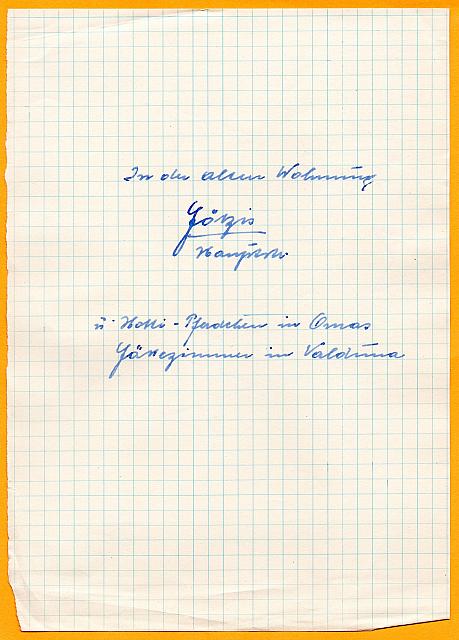 In der alten Wohnung
Götzis
Hauptstr.
u. Hotti-Pferdchen in Omas
Gästezimmer in Valduna